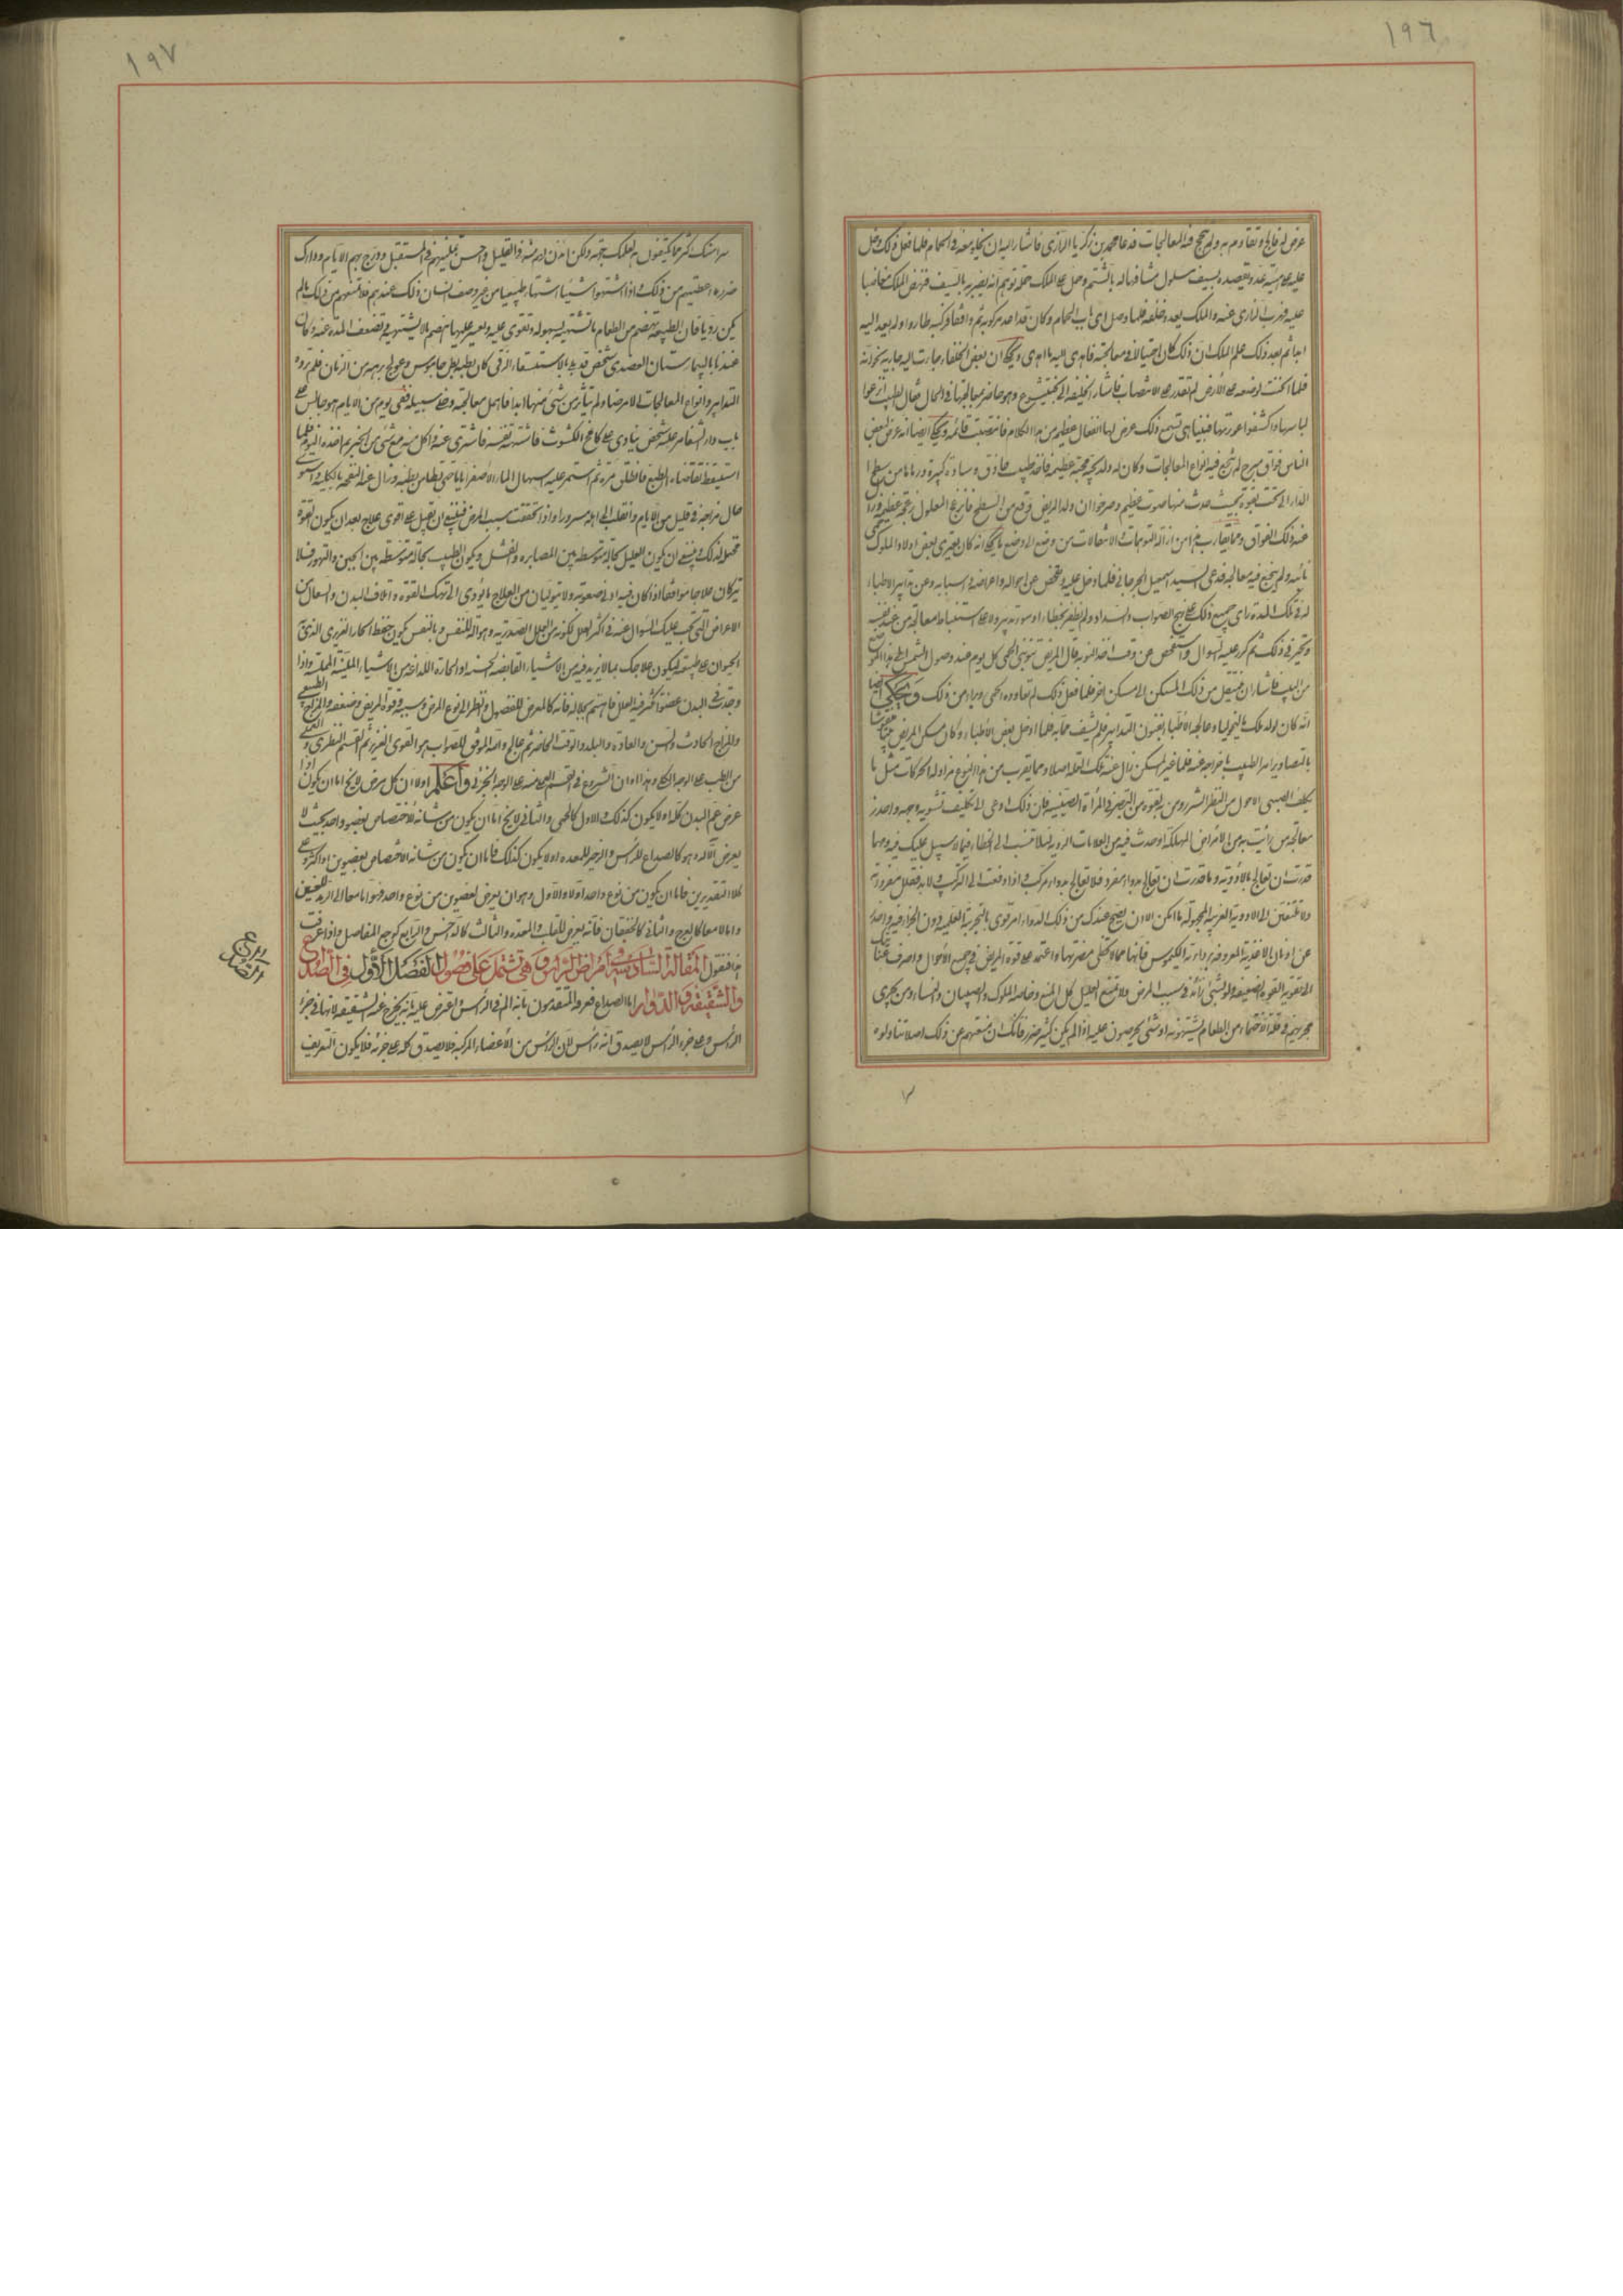 ١٩٦
عرض له فالج وتقادم به ولم ينجح فيه المعالجات فدعا محمد بن زكريا الرازي فاشار اليه ان يخلو معه في الحمام فلما فعل ذلك دخل
عليه على هيئة عدو يقصده بسيف مسلول مشافها له بالشتم وحمل على الملك حملة توهم انه يضربه بالسيف فنهض الملك مغاضبا
عليه فهرب الرازي عنه والملك يعدو خلفه فلما وصل الى باب الحمام وكان قد اعد مركوبه ثم واقفا فركبه طار ا ولم يعد اليه
ابدا ثم بعد ذلك علم الملك ان ذلك كان احتيالا في معالجته فاهدى اليه ما اهدى ويحكى ان بعض الخلفاء جاءت اليه جارية بخوانه
فلما انحنت لوضعه على الارض لم تقدر على الانتصاب فاشار الخليفة الى بختيشوع وهو حاضر بمعالجتها في الحال فقال لطبيب انزعوا
لباسها واكشفوا عورتها فبينا هي تسمع ذلك عرض لها انفعال عظيم من هذا الكلام فانتصبت قائمة ويحكى ايضا انه عرض لبعض
الناس فواق مبرح لم تنجع فيه انواع المعالجات وكان له ولد يحبه محبة عظيمة فاخذ طبيب حاذق وسادة كبيرة ورماها من سطح
الدار الى تحت بقوة بحيث حدث منها صوت عظيم وصرخوا ان ولد المريض وقع من السطح فانزعج المعلول زعجة عظيمة وزال
عنه ذلك الفواق ومما يقارب هذا من ازالة التوهمات والانتقالات من وضع الى وضع ما يحكى انه كان يعتري بعض اولاد الملوك حمى
نائبة ولم ينجع فيه معالجة فدعى السيد اسمعيل الجرجاني فلما دخل عليه وتفحص عن احواله واعراضه واسبابه وعن تدابير الاطباء
له في تلك المدة راى جميع ذلك على نهج الصواب والسداد ولم يظفر بخطاء او سوء تدبير ولا على استنباط معالجة من عند نفسه
وتحير في ذلك ثم كرر عليه السوال وتفحص عن وقت اخذ النوبة قال المريض تنوبني الحمى كل يوم عند وصول الشمس الى هذا الموضع
من البيت فاشار ان ينتقل من ذلك المسكن الى مسكن اخر فلما فعل ذلك لم تعاوده الحمى وبرأ من ذلك ويحكى ايضا
انه كان لولد ملك ماليخوليا وعالجه الاطباء بفنون التدابير فلم يشف مما به فلما دخل بعض الاطباء وكان مسكن المريض بيتا منقوشا
بالتصاوير امر الطبيب باخراجه عنه فلما غير المسكن زال عنه تلك العلة اصلا ومما يقرب من هذا النوع مزاولة الحركات مثل ما
يكلف الصبي الاحول من النظر الشزر ومن به لقوة من التبصر في المرأة الصينية فان ذلك ادعى الى تكليف تسوية وجهه واحذر
معالجة من رأيت به من الامراض المهلكة او حدث فيه من العلامات الردية لئلا تنسب الى الخطاء فيما لا سبيل عليك فيه ومهما
قدرت ان تعالج بالاغذية فلا تعالج بالادوية وما قدرت ان تعالج بدواء مفرد فلا تعالج بدواء مركب واذا دفعت الى التركيب
ولا تلتفتن الى الادوية الغريبة المجهولة ما امكن الا ان يصح عندك من ذلك الدواء امر قوي بالتجربة العلمية دون الجزافية واحذر
عن ادمان الاغذية المعروفة برداءة الكيموس فانها مما لا تخفى مضرتها واعتمد على قوة المريض في جميع الاحوال واصرف عنايتك
الى تقوية القوة الضعيفة ولو بشيء زائد في سبب المرض ولا تمنع العليل كل المنع وخاصة الملوك والصبيان والنساء ومن يجري
مجريهم في قلة الاحتماء من الطعام يشتهونه او شيء يحرصون عليه اذا لم يكن كثير ضرر فانك ان منعتهم عن ذلك اصلا تناولوه
١٩٧
سرا منك اكثر مما يكتفون به لعلك بحقه ولكن ائذن لهم منه في القليل واحسن تمنيهم في المستقبل ودرج بهم الايام وادرك
ضرره ان اعطيتهم من ذلك واذا اشتهوا شيئا اشتهاء طبيعيا من غير وصف انسان ذلك عندهم فلا تمنعهم من ذلك ما لم
يكن رديا فان الطبيعة تهضم من الطعام ما تشتهيه بسهولة وتقوى عليه ويعسر عليها هضم ما لا تشتهيه وتضعف المعدة عنه وكان
عندنا بالبيمارستان العضدي شخص قد بلي بالاستسقاء الزقي كان بطنه مثل جاموس وعولج برهة من الزمان فلم تزده
التدابير وانواع المعالجات الا مرضا ولم يتأثر من شيء منها ابدا فاهمل معالجته وخلي سبيله ففي يوم من الايام هو جالس على
باب دار الشفا مر عليه شخص ينادي على كامخ الكشوث فاشتهته نفسه فاشترى عنه واكل منه مع شيء من الخبز ثم اخذه النوم فلما
استيقظ تقاضاه الطبع فانطلق مرة ثم استمر عليه اسهال الماء الاصفر اياما حتى تطامن بطنه وزال عنه النفخة بالكلية واستوى
حال مزاجه في قليل من الايام وانقلب الى اهله مسرورا واذا تحققت سبب المرض فينبغي ان تقبل على اقوى علاج بعد ان يكون القوة
محتملة لذلك وينبغي ان يكون العليل بحالة متوسطة بين المصابرة والفشل ويكون الطبيب بحالة متوسطة بين الجبن والتهور فلا
يتركان علاجا موافقا اذا كان فيه ادنى صعوبة ولا يتوليان من العلاج ما يؤدي الى نهك القوة واتلاف البدن والسعال من
الاعراض التي تجب عليك السوال عنه في اكثر العلل لكونه من العلل الصدرية وهو آلة للتنفس وبالتنفس يكون حفظ الحار الغريزي الذي
الحيوان على طبيعته فليكون علاجك بما لا يزيد فيه من الاشياء القابضة الخشنة او الحارة اللذاعة من الاشياء الملينة المحللة واذا
وجدت في البدن عضوا كثر فيه العلل فاهتم بحاله فانه كالمعرض للفضول وانظر الى نوع المرض وسببه وقوة المريض وضعفه والمزاج الطبيعي
والمزاج الحادث والسن والعادة والبلد والوقت الحاضر ثم عالج والله الموفق للصواب هو القوي العزيز ثم القسم النظري والعملي
من الطب على الوجه الكلي وهذا اوان الشروع في القسم العملي منه على الوجه الجزئي واعلم اولا ان كل مرض لا يخ اما ان يكون اذا
عرض عم البدن كله او لا يكون كذلك والاول كالحمى والثاني لا يخ اما ان يكون من شانه الاختصاص بعضو واحد بحيث لا
يعرض الا له وهو كالصداع للراس والزحير للمعدة او لا يكون كذلك فاما ان يكون من شانه الاختصاص بعضوين او اكثر وعلى
كلا التقديرين فاما ان يكون من نوع واحد او لا والاول وهو ان يعرض لعضوين من نوع واحد فهو اما معا كالرمد للعينين
واما لا معا كالعرج والثاني كالخفقان فانه يعرض للقلب والمعدة والثالث كالحس والرابع كوجع المفاصل واذا عرفت
هذا فنقول المقالة السادسة في امراض الراس وهي تشتمل على فصول الفصل الاول في الصداع
والشقيقة والدوار اما الصداع فعرفه المتقدمون بانه الم في الراس واعترض عليه بانه يخرج عنه الشقيقة لانها في جزء
الراس وعلى جزء الراس لا يصدق انه راس لان الراس من الاعضاء المركبة فلا يصدق كله على جزئه فلا يكون التعريف